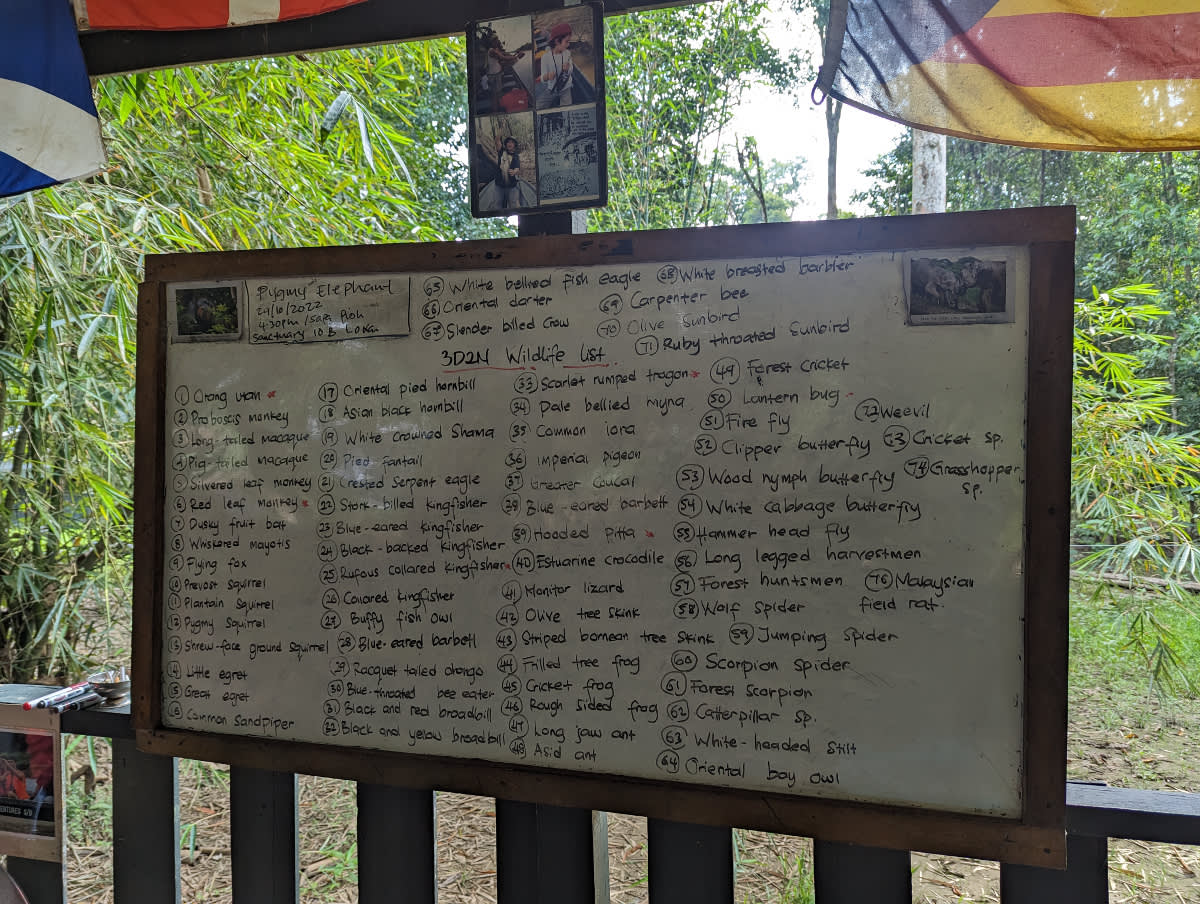 Pygmy Elephant
24/10/2022
4:30pm / Sapi Ploh
Sanctuary 10 B Lokan
65 White bellied fish eagle
66 Oriental darter
67 Slender billed Crow
68 White breasted barbier
69 Carpenter bee
70 Olive Sunbird
71 Ruby throated Sunbird
3D2N Wildlife List
1 Orang utan *
2 Proboscis monkey
3 Long-tailed macaque
4 Pig-tailed macaque
5 Silvered leaf monkey
6 Red leaf monkey *
7 Dusky fruit bat
8 Whiskered mayotis
9 Flying fox
10 Prevost squirrel
11 Plantain Squirrel
12 Pygmy Squirrel
13 Shrew-face ground squirrel
14 Little egret
15 Great egret
16 Common Sandpiper
17 Oriental pied hornbill
18 Asian black hornbill
19 White Crowned Shama
20 Pied fantail
21 Crested Serpent eagle
22 Stork-billed kingfisher
23 Blue-eared kingfisher
24 Black-backed kingfisher
25 Rufous collared kingfisher *
26 Collared kingfisher
27 Buffy fish owl
28 Blue-eared barbett
29 Racquet tailed drongo
30 Blue-throated bee eater
31 Black and red broadbill
32 Black and yelow broadbill
33 Scarlet rumped trogon *
34 Pale bellied myna
35 Common iora
36 Imperial pigeon
37 Greater Coucal
38 Blue-eared barbett
39 Hooded Pitta *
40 Estuarine crocodile
41 Monitor lizard
42 Olive tree skink
43 Striped bornean tree skink
44 Frilled tree frog
45 Cricket frog
46 Rough sided frog
47 Long jaw ant
48 Asid ant
49 Forest Cricket
50 Lantern bug
51 Fire fly
52 Clipper butterfly
53 Wood nymph butterfly
54 White cabbage butterfly
55 Hammer head fly
56 Long legged harvestmen
57 Forest huntsmen
58 Wolf spider
59 Jumping spider
60 Scorpion spider
61 Forest Scorpion
62 Catterpillar sp.
63 White-headed stilt
64 Oriental bay owl
72 Weevil
73 Cricket sp.
74 Grasshopper
sp.
76 Malaysian
field rat.